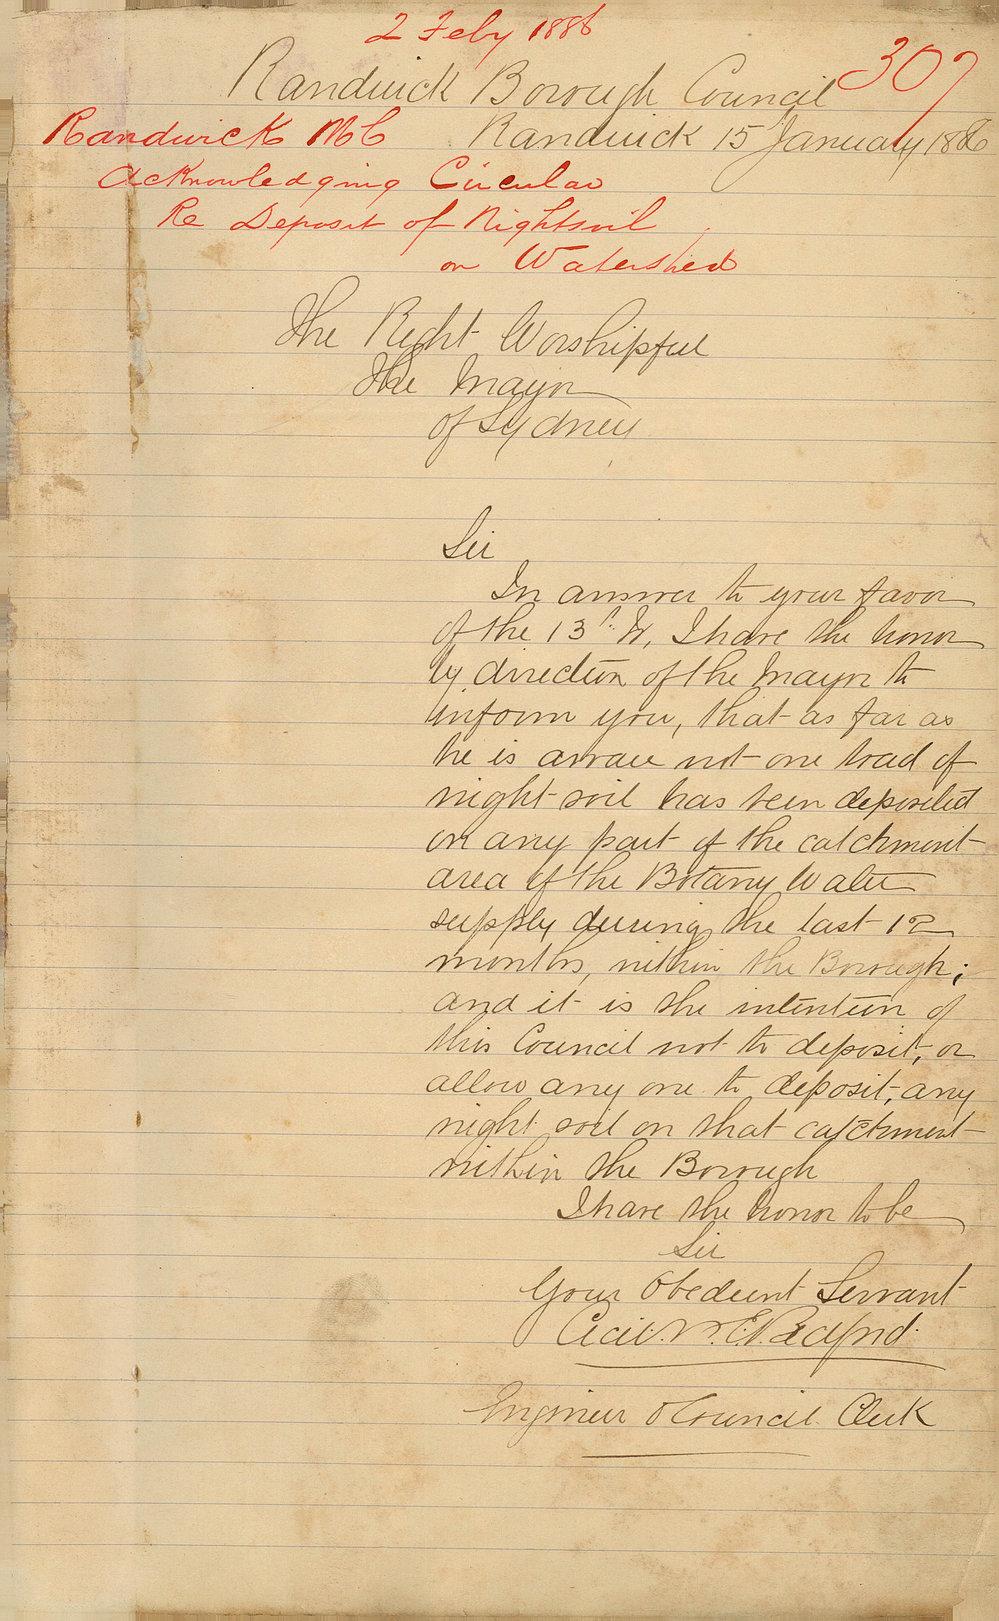 2 Feby 1886
307
Randwick Borough Council
Randwick MC
Randwick 15 January 1886
Acknowledging Circular
Re Deposit of Nightsoil
on Watershed
The Right Worshipful
The Mayor
of Sydney
Sir
In answer to your favor
of the 13th. I have the honor
by direction of the Mayor to
inform you, that as far as
he is aware not one load of
night soil has been deposited
on any part of the catchment
area of the Botany Water
supply during the last 12
months, within the Borough;
and it is the intention of
this Council not to deposit, or
allow any one to deposit, any
night soil on that catchment
within the Borough
I have the honor to be
Sir
Your Obedient Servant
Cecil
Engineer & Council Clerk